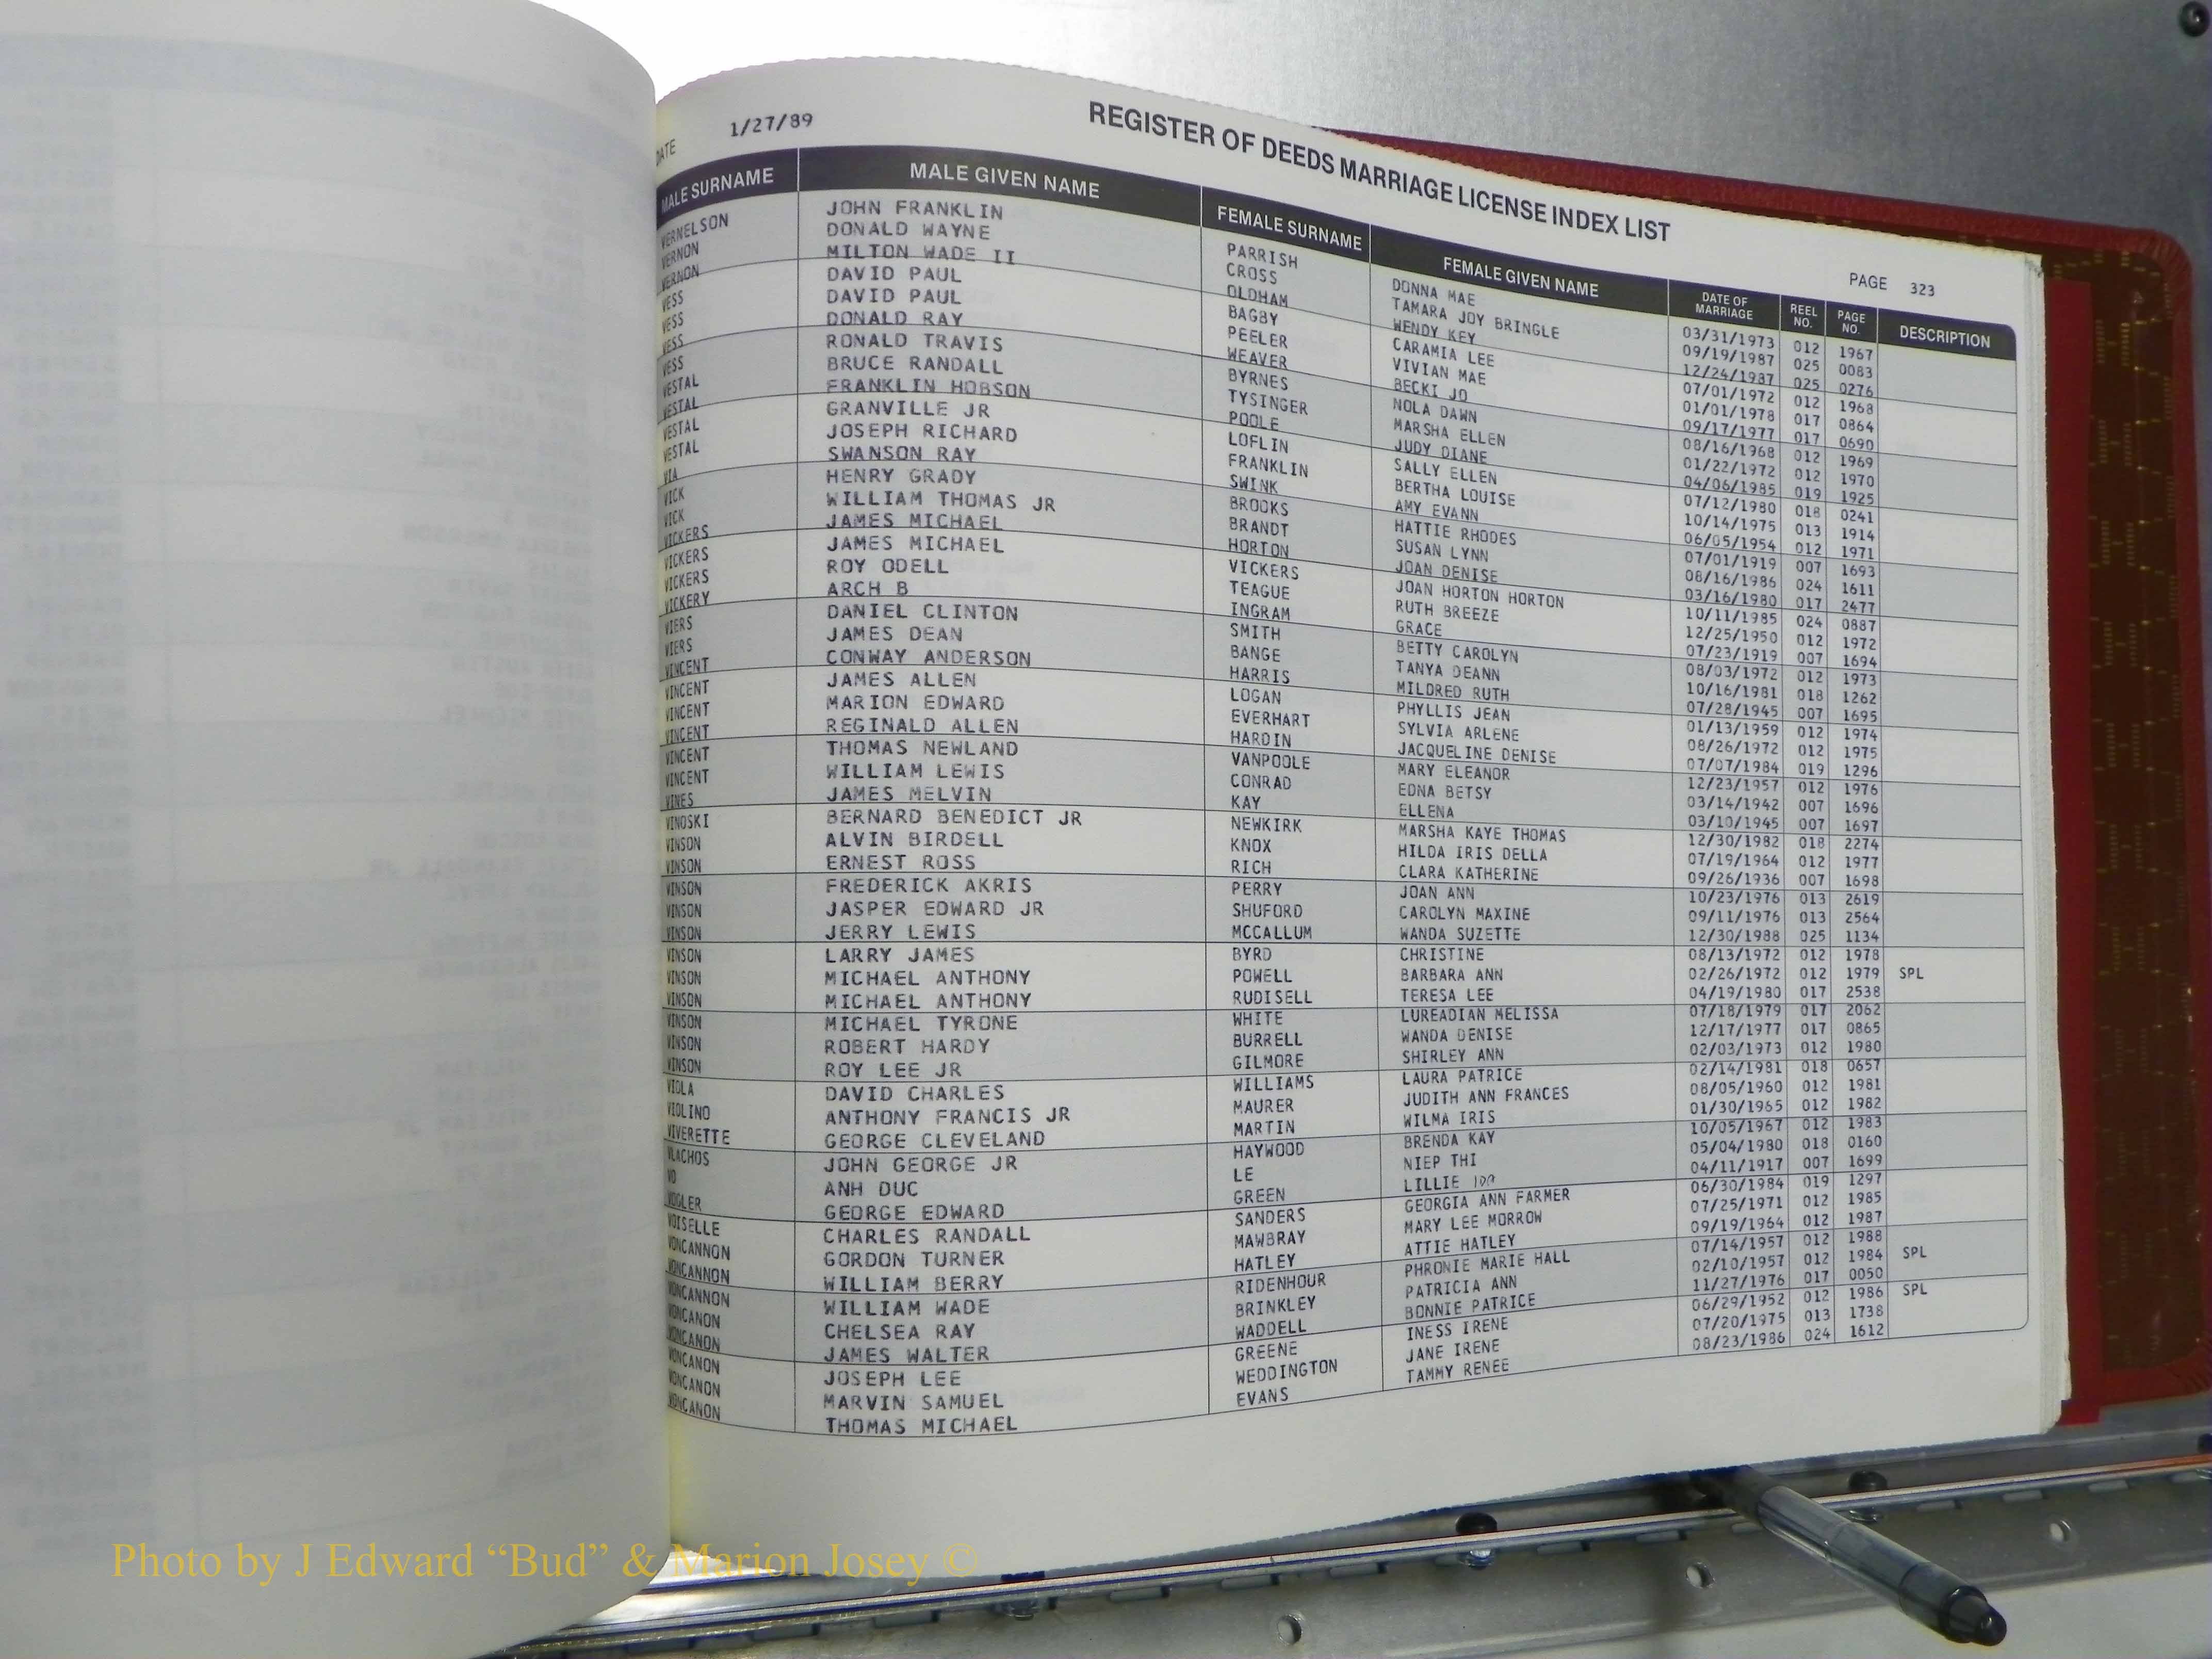 DATE 1/27/89 REGISTER OF DEEDS MARRIAGE LICENSE INDEX LIST PAGE 323
MALE SURNAME MALE GIVEN NAME FEMALE SURNAME FEMALE GIVEN NAME DATE OF MARRIAGE REEL NO. PAGE NO. DESCRIPTION
VERNELSON JOHN FRANKLIN PARRISH DONNA MAE 03/31/1973 012 1967
VERNON DONALD WAYNE CROSS TAMARA JOY BRINGLE 09/19/1987 025 0083
VERNON MILTON WADE II OLDHAM WENDY KEY 12/24/1987 025 0276
VESS DAVID PAUL BAGBY CARAMIA LEE 07/01/1972 012 1968
VESS DAVID PAUL PEELER VIVIAN MAE 01/01/1978 017 0864
VESS DONALD RAY WEAVER BECKI JO 09/17/1977 017 0690
VESS RONALD TRAVIS BYRNES NOLA DAWN 08/16/1968 012 1969
VESTAL BRUCE RANDALL TYSINGER MARSHA ELLEN 01/22/1972 012 1970
VESTAL FRANKLIN HOBSON POOLE JUDY DIANE 04/06/1985 019 1925
VESTAL GRANVILLE JR LOFLIN SALLY ELLEN 07/12/1980 018 0241
VESTAL JOSEPH RICHARD FRANKLIN BERTHA LOUISE 10/14/1975 013 1914
VIA SWANSON RAY SWINK AMY EVANN 06/05/1954 012 1971
VICK HENRY GRADY BROOKS HATTIE RHODES 07/01/1919 007 1693
VICK WILLIAM THOMAS JR BRANDT SUSAN LYNN 08/16/1986 024 1611
VICKERS JAMES MICHAEL HORTON JOAN DENISE 03/16/1980 017 2477
VICKERS JAMES MICHAEL VICKERS JOAN HORTON HORTON 10/11/1985 024 0887
VICKERS ROY ODELL TEAGUE RUTH BREEZE 12/25/1950 012 1972
VICKERY ARCH B INGRAM GRACE 07/23/1919 007 1694
VIERS DANIEL CLINTON SMITH BETTY CAROLYN 08/03/1972 012 1973
VIERS JAMES DEAN BANGE TANYA DEANN 10/16/1981 018 1262
VINCENT CONWAY ANDERSON HARRIS MILDRED RUTH 07/28/1945 007 1695
VINCENT JAMES ALLEN LOGAN PHYLLIS JEAN 01/13/1959 012 1974
VINCENT MARION EDWARD EVERHART SYLVIA ARLENE 08/26/1972 012 1975
VINCENT REGINALD ALLEN HARDIN JACQUELINE DENISE 07/07/1984 019 1296
VINCENT THOMAS NEWLAND VANPOOLE MARY ELEANOR 12/23/1957 012 1976
VINCENT WILLIAM LEWIS CONRAD EDNA BETSY 03/14/1942 007 1696
VINES JAMES MELVIN KAY ELLENA 03/10/1945 007 1697
VINOSKI BERNARD BENEDICT JR NEWKIRK MARSHA KAYE THOMAS 12/30/1982 018 2274
VINSON ALVIN BIRDELL KNOX HILDA IRIS DELLA 07/19/1964 012 1977
VINSON ERNEST ROSS RICH CLARA KATHERINE 09/26/1936 007 1698
VINSON FREDERICK AKRIS PERRY JOAN ANN 10/23/1976 013 2619
VINSON JASPER EDWARD JR SHUFORD CAROLYN MAXINE 09/11/1976 013 2564
VINSON JERRY LEWIS MCCALLUM WANDA SUZETTE 12/30/1988 025 1134
VINSON LARRY JAMES BYRD CHRISTINE 08/13/1972 012 1978
VINSON MICHAEL ANTHONY POWELL BARBARA ANN 02/26/1972 012 1979 SPL
VINSON MICHAEL ANTHONY RUDISELL TERESA LEE 04/19/1980 017 2538
VINSON MICHAEL TYRONE WHITE LUREADIAN MELISSA 07/18/1979 017 2062
VINSON ROBERT HARDY BURRELL WANDA DENISE 12/17/1977 017 0865
VINSON ROY LEE JR GILMORE SHIRLEY ANN 02/03/1973 012 1980
VIOLA DAVID CHARLES WILLIAMS LAURA PATRICE 02/14/1981 018 0657
VIOLINO ANTHONY FRANCIS JR MAURER JUDITH ANN FRANCES 08/05/1960 012 1981
VIVERETTE GEORGE CLEVELAND MARTIN WILMA IRIS 01/30/1965 012 1982
VLACHOS JOHN GEORGE JR HAYWOOD BRENDA KAY 10/05/1967 012 1983
VO ANH DUC LE NIEP THI 05/04/1980 018 0160
VOGLER GEORGE EDWARD GREEN LILLIE 04/11/1917 007 1699
VOISELLE CHARLES RANDALL SANDERS GEORGIA ANN FARMER 06/30/1984 019 1297
VONCANNON GORDON TURNER MAWBRAY MARY LEE MORROW 07/25/1971 012 1985
VONCANNON WILLIAM BERRY HATLEY ATTIE HATLEY 09/19/1964 012 1987
VONCANNON WILLIAM WADE RIDENHOUR PHRONIE MARIE HALL 07/14/1957 012 1988
VONCANON CHELSEA RAY BRINKLEY PATRICIA ANN 02/10/1957 012 1984 SPL
VONCANON JAMES WALTER WADDELL BONNIE PATRICE 11/27/1976 017 0050
VONCANON JOSEPH LEE GREENE INESS IRENE 06/29/1952 012 1986 SPL
VONCANON MARVIN SAMUEL WEDDINGTON JANE IRENE 07/20/1975 013 1738
VONCANON THOMAS MICHAEL EVANS TAMMY RENEE 08/23/1986 024 1612
Photo by J Edward “Bud” & Marion Josey ©